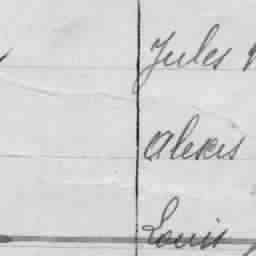 Jules
Alexis
Louis